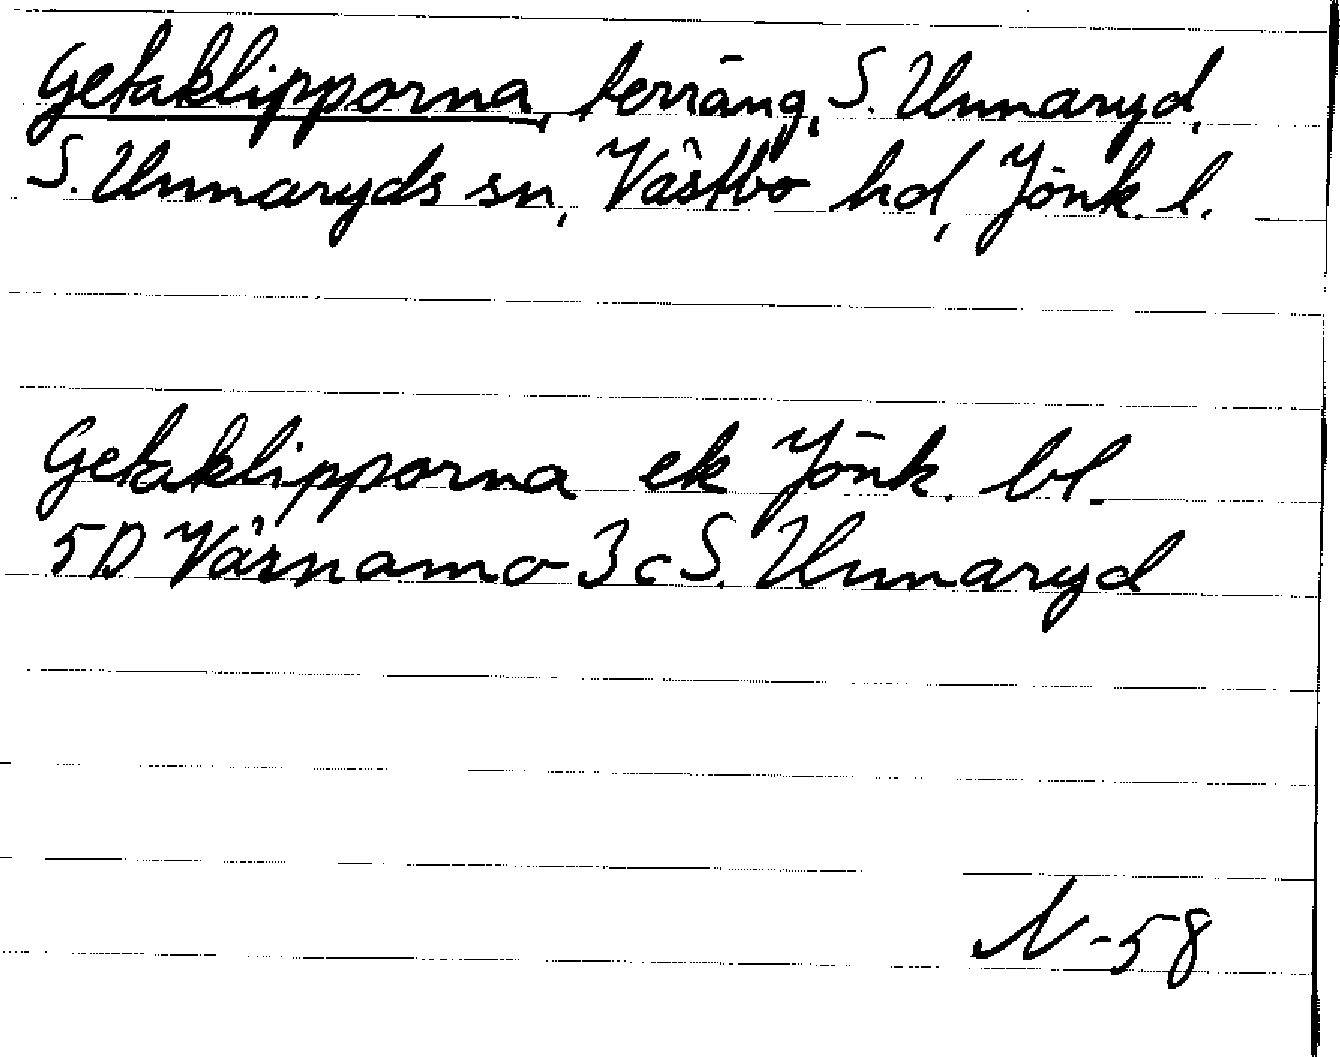 Getaklipporna, terräng, S. Unnaryd,
S. Unnaryds sn, Västbo hd, Jönk. l.
Getaklipporna ek Jönk. bl.
5D Värnamo 3c S. Unnaryd
N-58